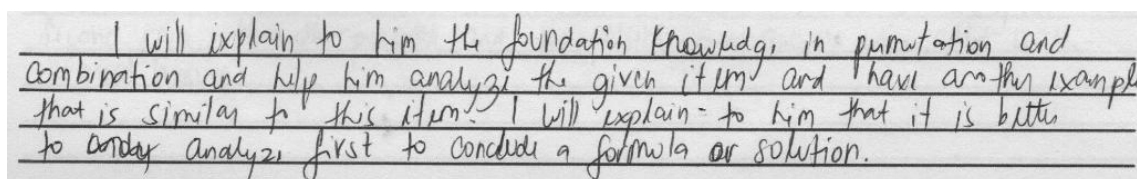 I will explain to him the foundation knowledge in permutation and
combination and help him analyze the given item and have another example
that is similar to this item. I will explain to him that it is better
to analyze first to conclude a formula or solution.